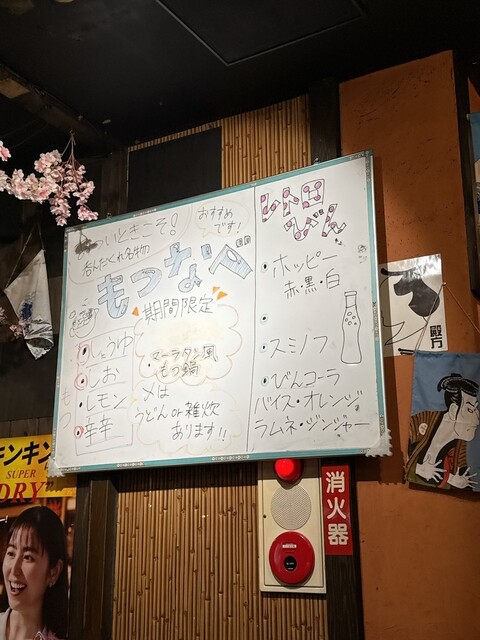 ついときこそ!
おすすめ
です!
呑んだくれ名物
もつなべ
期間限定
しょうゆ
しお
レモン
辛辛
もつ
マーラタン風
もつ鍋
〆は
うどんor雑炊
あります!!
レトロ
びん
ホッピー
赤・黒・白
スミノフ
びんコーラ
バイス・オレンジ
ラムネ・ジンジャー
殿方
消火器
キンキン
SUPER
DRY"